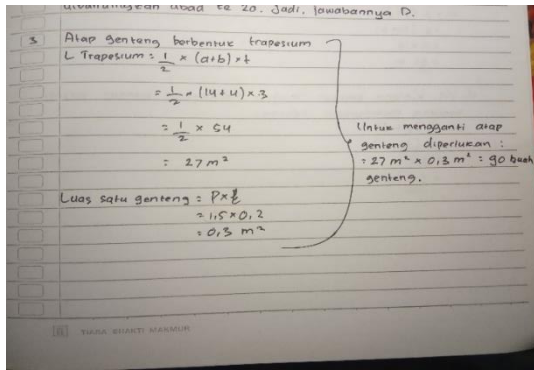 dibandingkan abad ke 20. Jadi, jawabannya D.
3 Atap genteng berbentuk trapesium
L Trapesium = 1/2 × (a+b) × t
= 1/2 × (14+4) × 3
= 1/2 × 54
= 27 m²
Luas satu genteng = P×l
= 1,5 × 0,2
= 0,3 m²
Untuk mengganti atap
genteng diperlukan :
= 27 m² × 0,3 m² = 90 buah
genteng.
TIARA BHAKTI MAKMUR